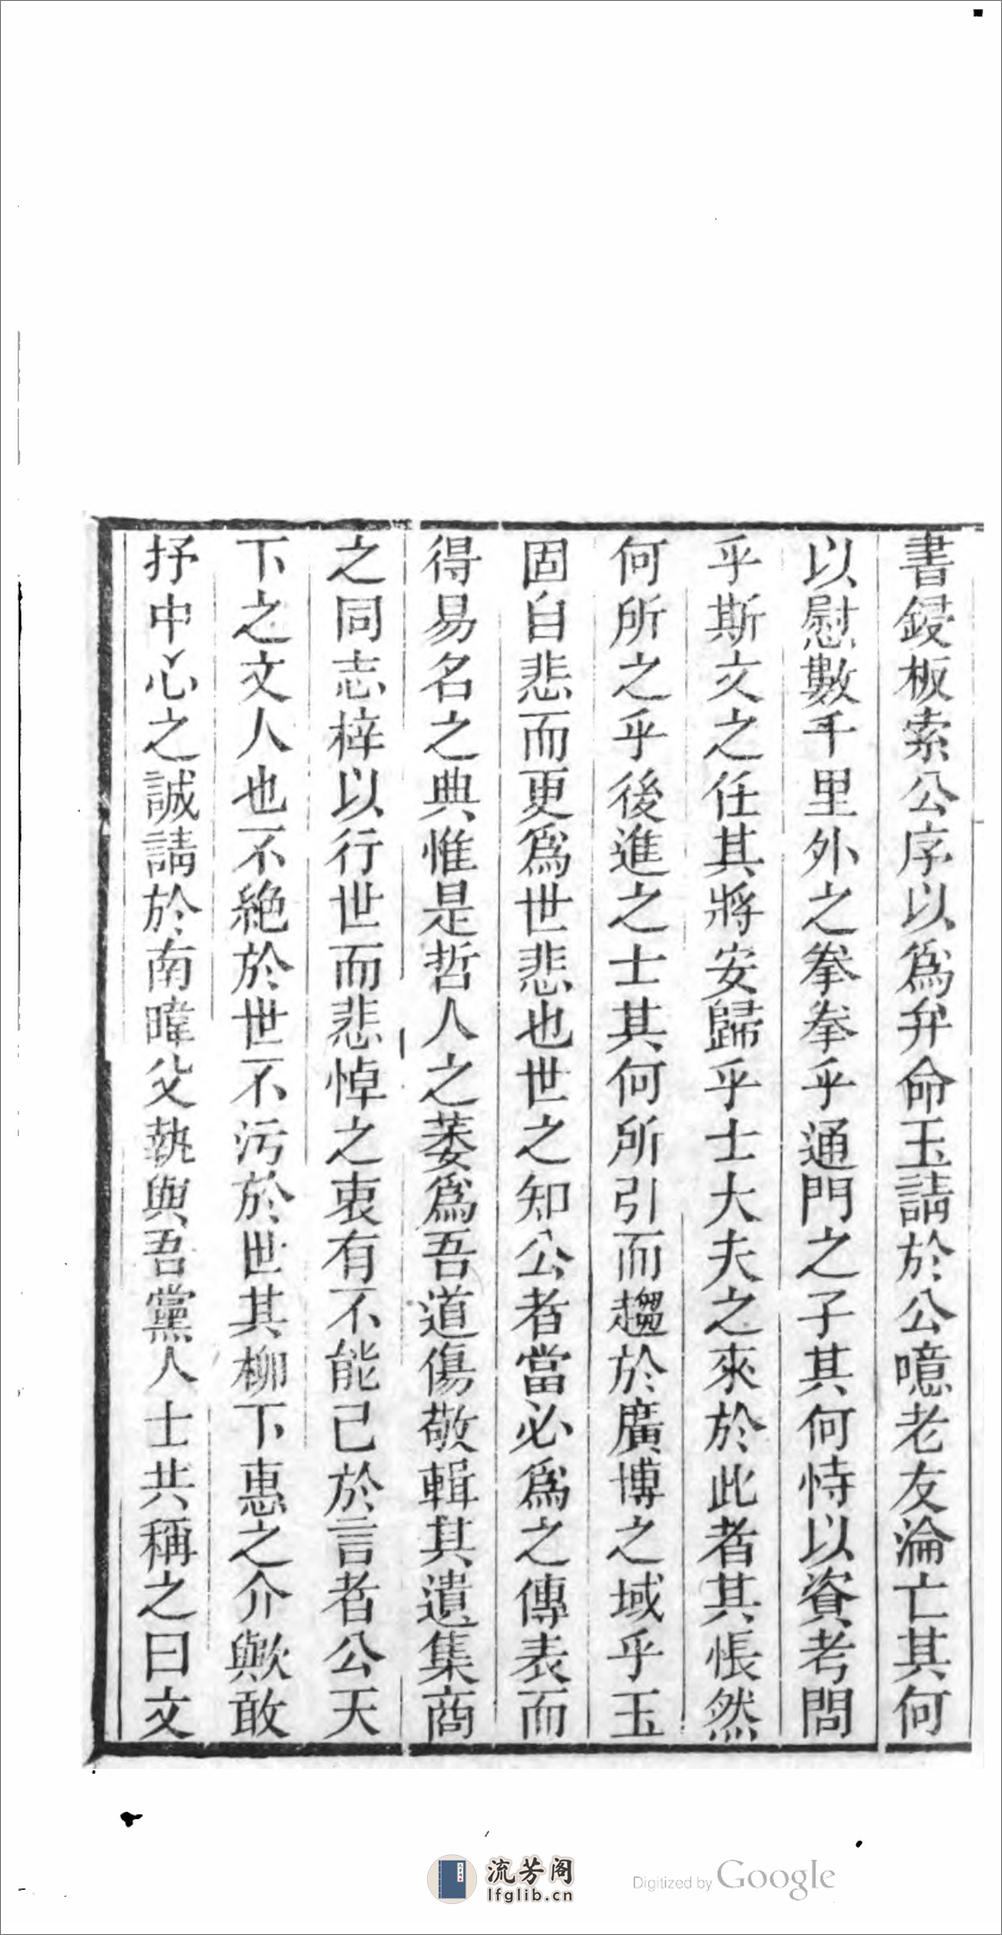 書鋟板索公序以爲弁命玉請於公噫老友淪亡其何
以慰數千里外之拳拳乎通門之子其何恃以資考問
乎斯文之任其將安歸乎士大夫之來於此者其悵然
何所之乎後進之士其何所引而趨於廣博之域乎玉
固自悲而更爲世悲也世之知公者當必爲之傳表而
得易名之典惟是哲人之萎爲吾道傷敬輯其遺集商
之同志梓以行世而悲悼之衷有不能已於言者公天
下之文人也不絶於世不污於世其柳下惠之介歟敢
抒中心之誠請於南暐父執與吾黨人士共稱之曰文
流芳阁
lfglib.cn
Digitized by Google